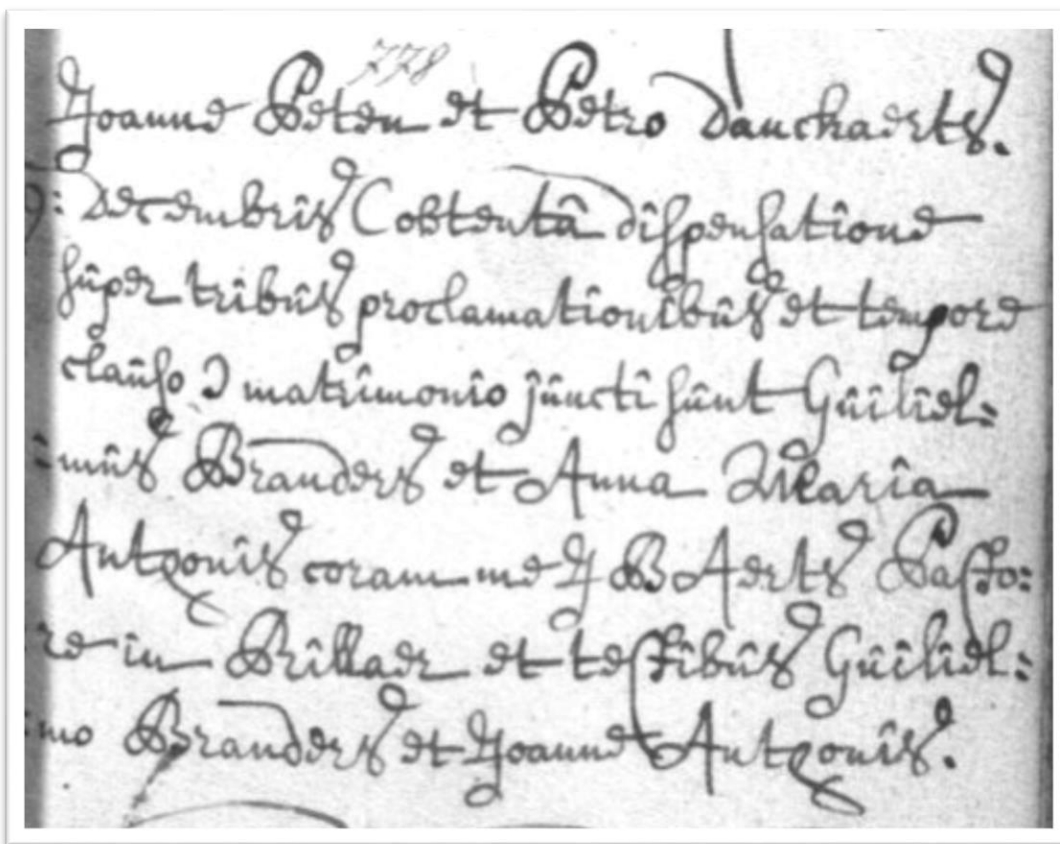 778
Joanne Peten et Petro Danckaerts.
9: decembris Cobtentâ dispensatione
super tribus proclamationibus et tempore
clauso J matrimonio juncti sunt Guiliel:
:mus Branders et Anna Maria
Antzonis coram me J B Aerts Pasto:
re in Brillaer et testibus Guiliel:
:mo Branders et Joanne Antzonis.